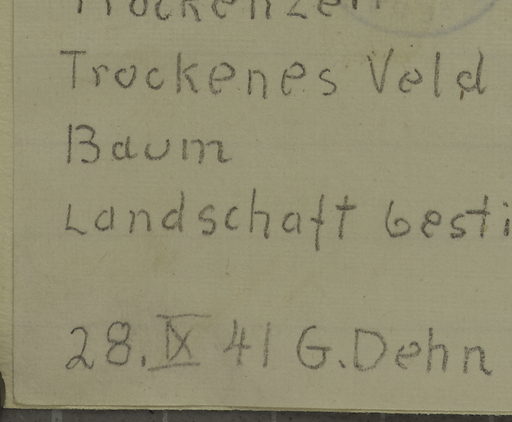 Trockenzeit
Trockenes Veld
Baum
Landschaft besti
28. IX 41 G. Dehn